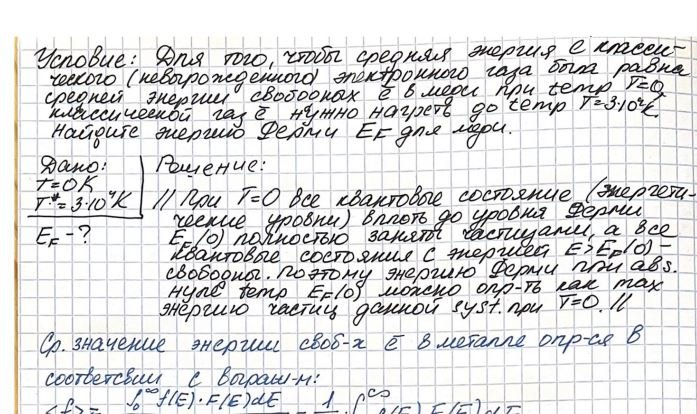 Условие: Для того, чтобы средняя энергия e класси-
ческого (невырожденного) электронного газа была равна
средней энергии свободных ē в меди при temp T=0,
классической газ ē нужно нагреть до temp T=3·10⁴K.
Найдите энергию Ферми E_F для меди.
Дано:
T=0K
T*=3·10⁴K
E_F-?
Решение:
// При T=0 все квантовые состояние (энергети-
ческие уровни) вплоть до уровня Ферми
E_F(0) полностью заняты частицами, а все
квантовые состояния с энергией E>E_F(0)-
свободны. Поэтому энергию Ферми при abs.
нуле temp E_F(0) можно опр-ть как max
энергию частиц данной syst. при T=0. //
Ср. значение энергии своб-х ē в металле опр-ся в
соответсвии с выраж-м:
∫₀^∞ f(E)·F(E)dE